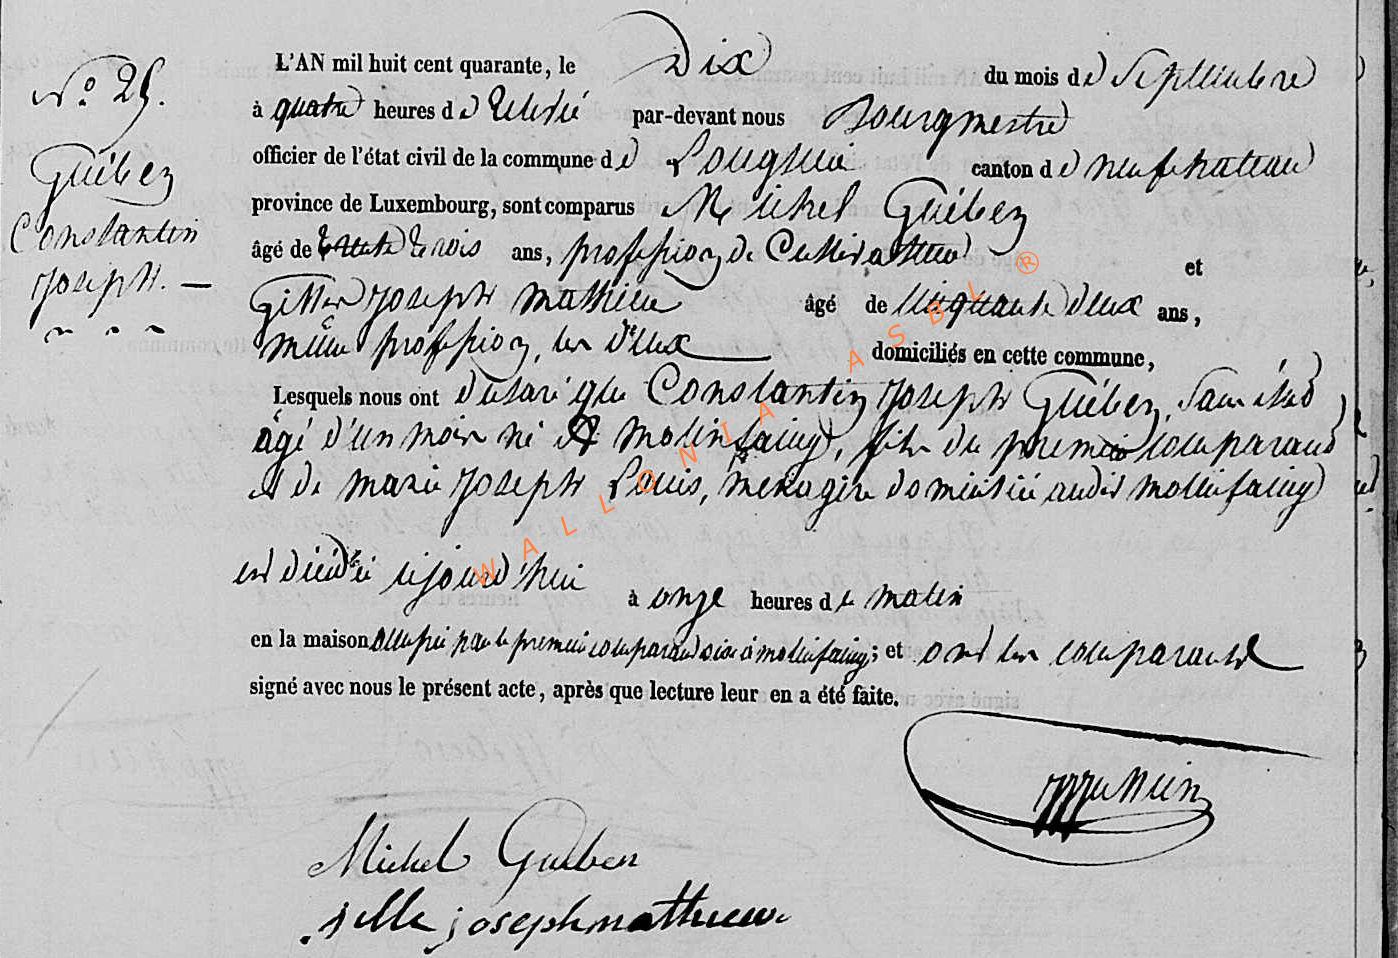 N.º 25.
Guében
Constantin
Joseph. —
L'AN mil huit cent quarante, le Dix du mois de Septembre
à quatre heures de relevée par-devant nous Bourgmestre
officier de l'état civil de la commune de canton de neufchateau
province de Luxembourg, sont comparus Michel Guében
âgé de trente trois ans, profession de Cultivateur et
Joseph mathieu âgé de Cinquante deux ans,
même profession, les deux domiciliés en cette commune,
Lesquels nous ont déclaré que Constantin Joseph Guében, sans état
âgé d'un mois né à molinfaing, fils du premier comparant
et de marie Joseph Louis, ménagère domiciliée audit molinfaing
est décédé cejourd'hui à onze heures du matin
en la maison occupée par le premier comparant sise à molinfaing; et ont les comparants
signé avec nous le présent acte, après que lecture leur en a été faite.
Michel Guében
joseph mathieu
WALLONIA ASBL ®